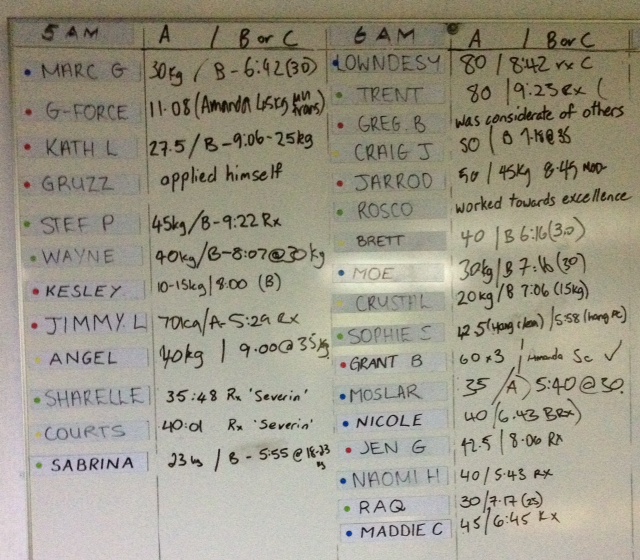 5 AM A / B or C
MARC G 30kg / B - 6:42 (30)
G-FORCE 11.08 (Amanda 45kg
KATH L 27.5 / B - 9:06 - 25kg
GRUZZ applied himself
STEF P 45kg / B - 9:22 Rx
WAYNE 40kg / B - 8:07 @ 30kg
KESLEY 10-15kg / 8.00 (B)
JIMMY. L 70kg / A - 5:29 Rx
ANGEL 40kg / 9.00 @ 35kg
SHARELLE 35:48 Rx 'Severin'
COURTS 40:01 Rx 'Severin'
SABRINA 23kg / B - 5:55 @ 18-23 kg
6 AM A / B or C
LOWNDESY 80 / 8:42 rx C
TRENT 80 / 9:23 Rx (
GREG. B was considerate of others
CRAIG J 50 /
JARROD 50 / 45kg 8.45 MOD
ROSCO worked towards excellence
BRETT 40 / B 6:16 (30)
MOE 30kg / B 7.16 (30)
CRYSTAL 20kg / B 7:06 (15kg)
SOPHIE S 42.5 (Hang clean) / 5:58 (hang pc)
GRANT B 60 x 3 / Amanda Sc ✓
MOSLAR 35 / A) 5:40 @ 30.
NICOLE 40 / 6.43 BRx)
JEN G 42.5 / 8.06 Rx
NAOMI H 40 / 5:43 Rx
RAQ 30 / 7.17 (25)
MADDIE C 45 / 6:45 Rx